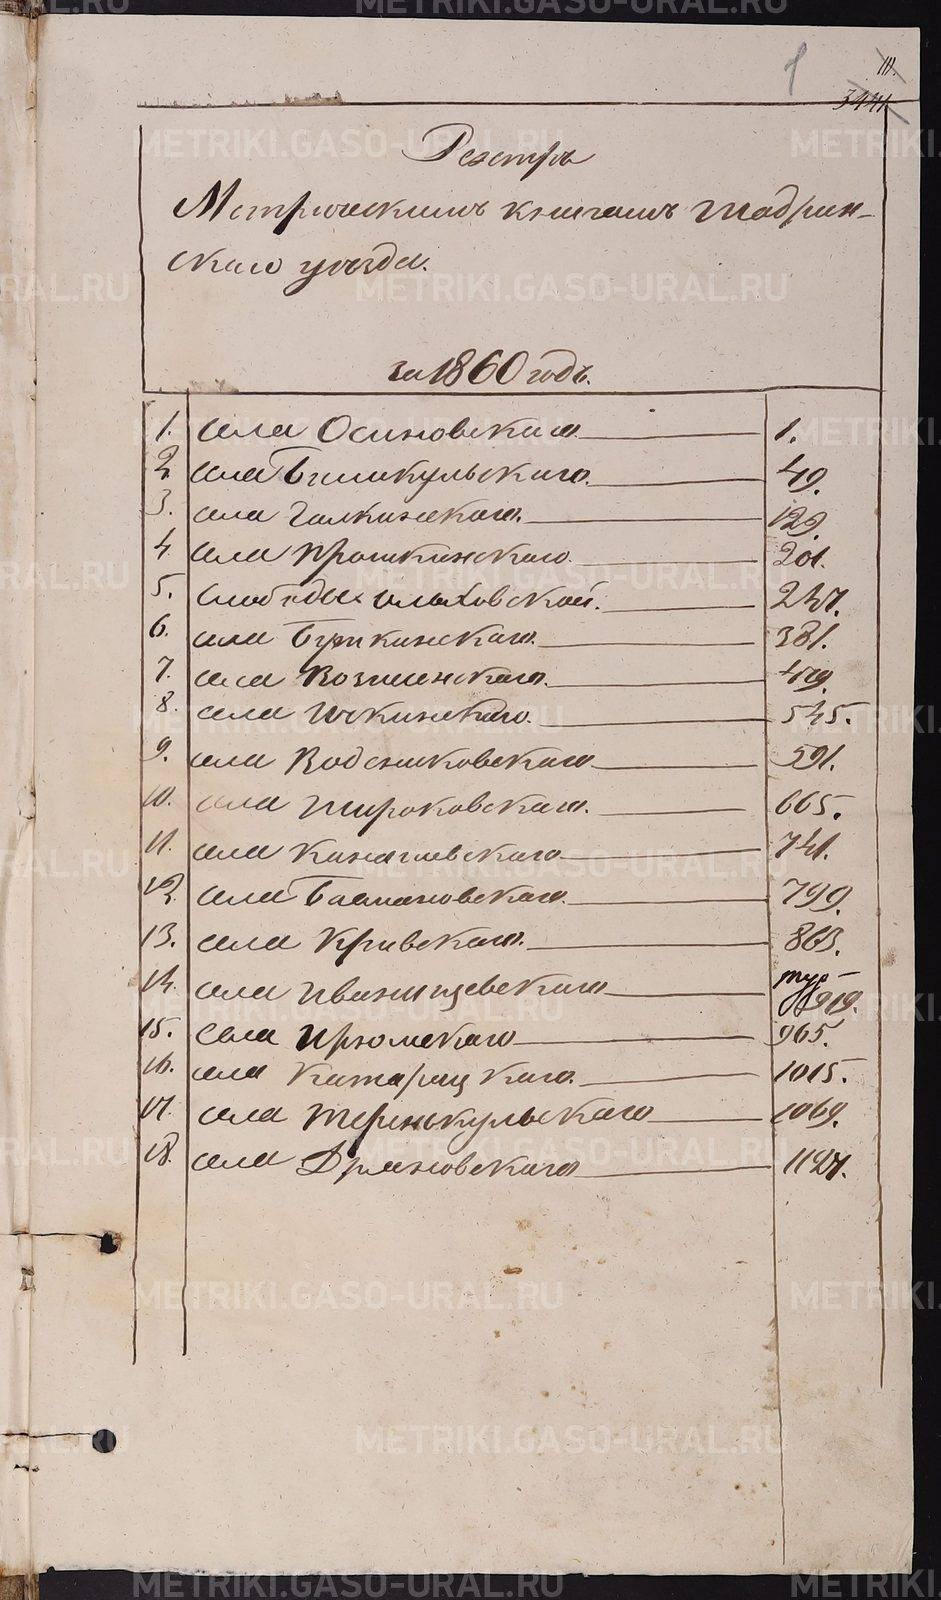 1
111.
3441.
Реэстръ
Метрическимъ книгамъ Шадрин-
скаго уѣзда.
за 1860 годъ.
1. села Осиновскаго 1.
2 села Бѣликульскаго. 49.
3. села Галкинскаго. 129.
4. села Прошкинскаго 201.
5. Слободы Ольховской. 247.
6. села Буткинскаго. 381.
7. села Вознесенскаго. 479.
8. села Ичкинскаго. 545.
9. села Воденниковскаго 591.
10. села Широковскаго. 665.
11. села Канашевскаго 741.
12. села Басмановскаго. 799.
13. села Кривскаго. 863.
14. села Иванищевскаго 919.
15. Села Ирюмскаго 965.
16. села Катарацкаго. 1015.
17. села Теренькульскаго 1069.
18. села Дряновскаго 1127.
METRIKI.GASO-URAL.RU